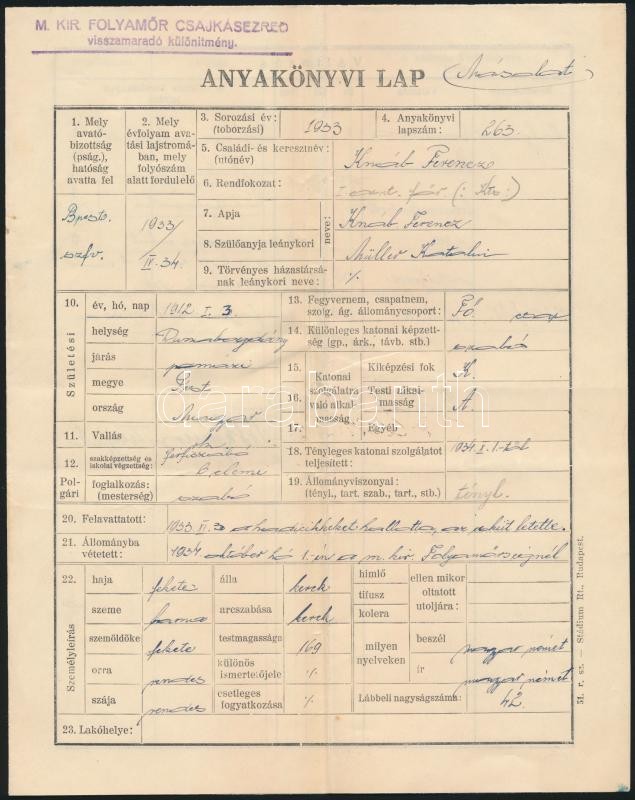 M. KIR. FOLYAMŐR CSAJKÁSEZRED
visszamaradó különítmény.
ANYAKÖNYVI LAP (Másolat)
1. Mely avató-
bizottság
(psság.),
hatóság
avatta fel
Bpest.
szfv.
2. Mely
évfolyam ava-
tási lajstromá-
ban, mely
folyószám
alatt fordul elő
1933/
IV. 34.
3. Sorozási év:
(toborzási)
1933
4. Anyakönyvi
lapszám:
263.
5. Családi- és keresztnév:
(utónév)
Knáb Ferencz
6. Rendfokozat:
7. Apja
neve:
Knáb Ferencz
8. Szülőanyja leánykori
Müller Katalin
9. Törvényes házastársá-
nak leánykori neve:
%
Születési
10.
év, hó, nap
1912 I. 3
helység
Dunabogdány
járás
pomázi
megye
Pest
ország
Magyar
11. Vallás
12. szakképzettség és
iskolai végzettség:
férfiszabó
6 elemi
Pol-
gári
foglalkozás:
(mesterség)
szabó
13. Fegyvernem, csapatnem,
szolg. ág. állománycsoport:
Fő.
14. Különleges katonai képzett-
ség (gp., árk., távb. stb.)
szabó
15.
16.
17.
Katonai
szolgálatra
való alkal-
masság
Kiképzési fok
K.
Testi alkal-
masság
A
Egyéb
18. Tényleges katonai szolgálatot
teljesített:
1934. X. 1.-től
19. Állományviszonyai:
(tényl., tart. szab., tart., stb.)
tényl.
20. Felavattatott:
1933 VI. 3 a hadicikkeket hallotta, az esküt letette.
21. Állományba
vétetett:
1934 október hó 1.-én a m. kir. Folyamőrségnél
Személyleírás
22.
haja
fekete
szeme
barna
szemöldöke
fekete
orra
rendes
szája
rendes
álla
kerek
arcszabása
kerek
testmagassága
169
különös
ismertetőjele
%
esetleges
fogyatkozása
%
himlő
tífusz
kolera
ellen mikor
oltatott
utoljára:
milyen
nyelveken
beszél
magyar német
ír
magyar német
Lábbeli nagyságszáma:
42.
23. Lakóhelye:
51. r. sz. — Stádium Rt., Budapest.
darabanth